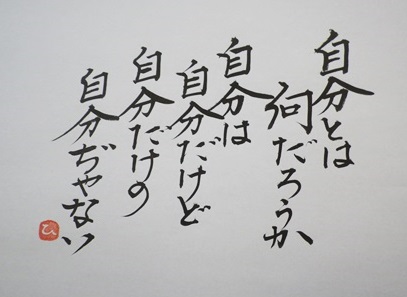 自分とは
何だろうか
自分は
自分だけど
自分だけの
自分ぢゃない
ひ